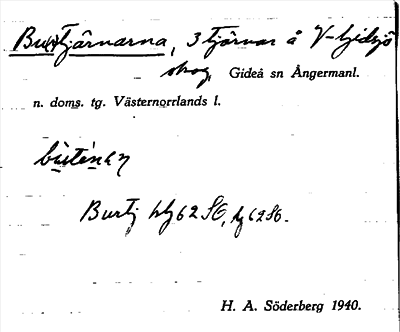 Burtjärnarna, 3 tjärnar å V-Gidsjö
skog, Gideå sn Ångermanl.
n. doms. tg. Västernorrlands l.
Burtj
H. A. Söderberg 1940.